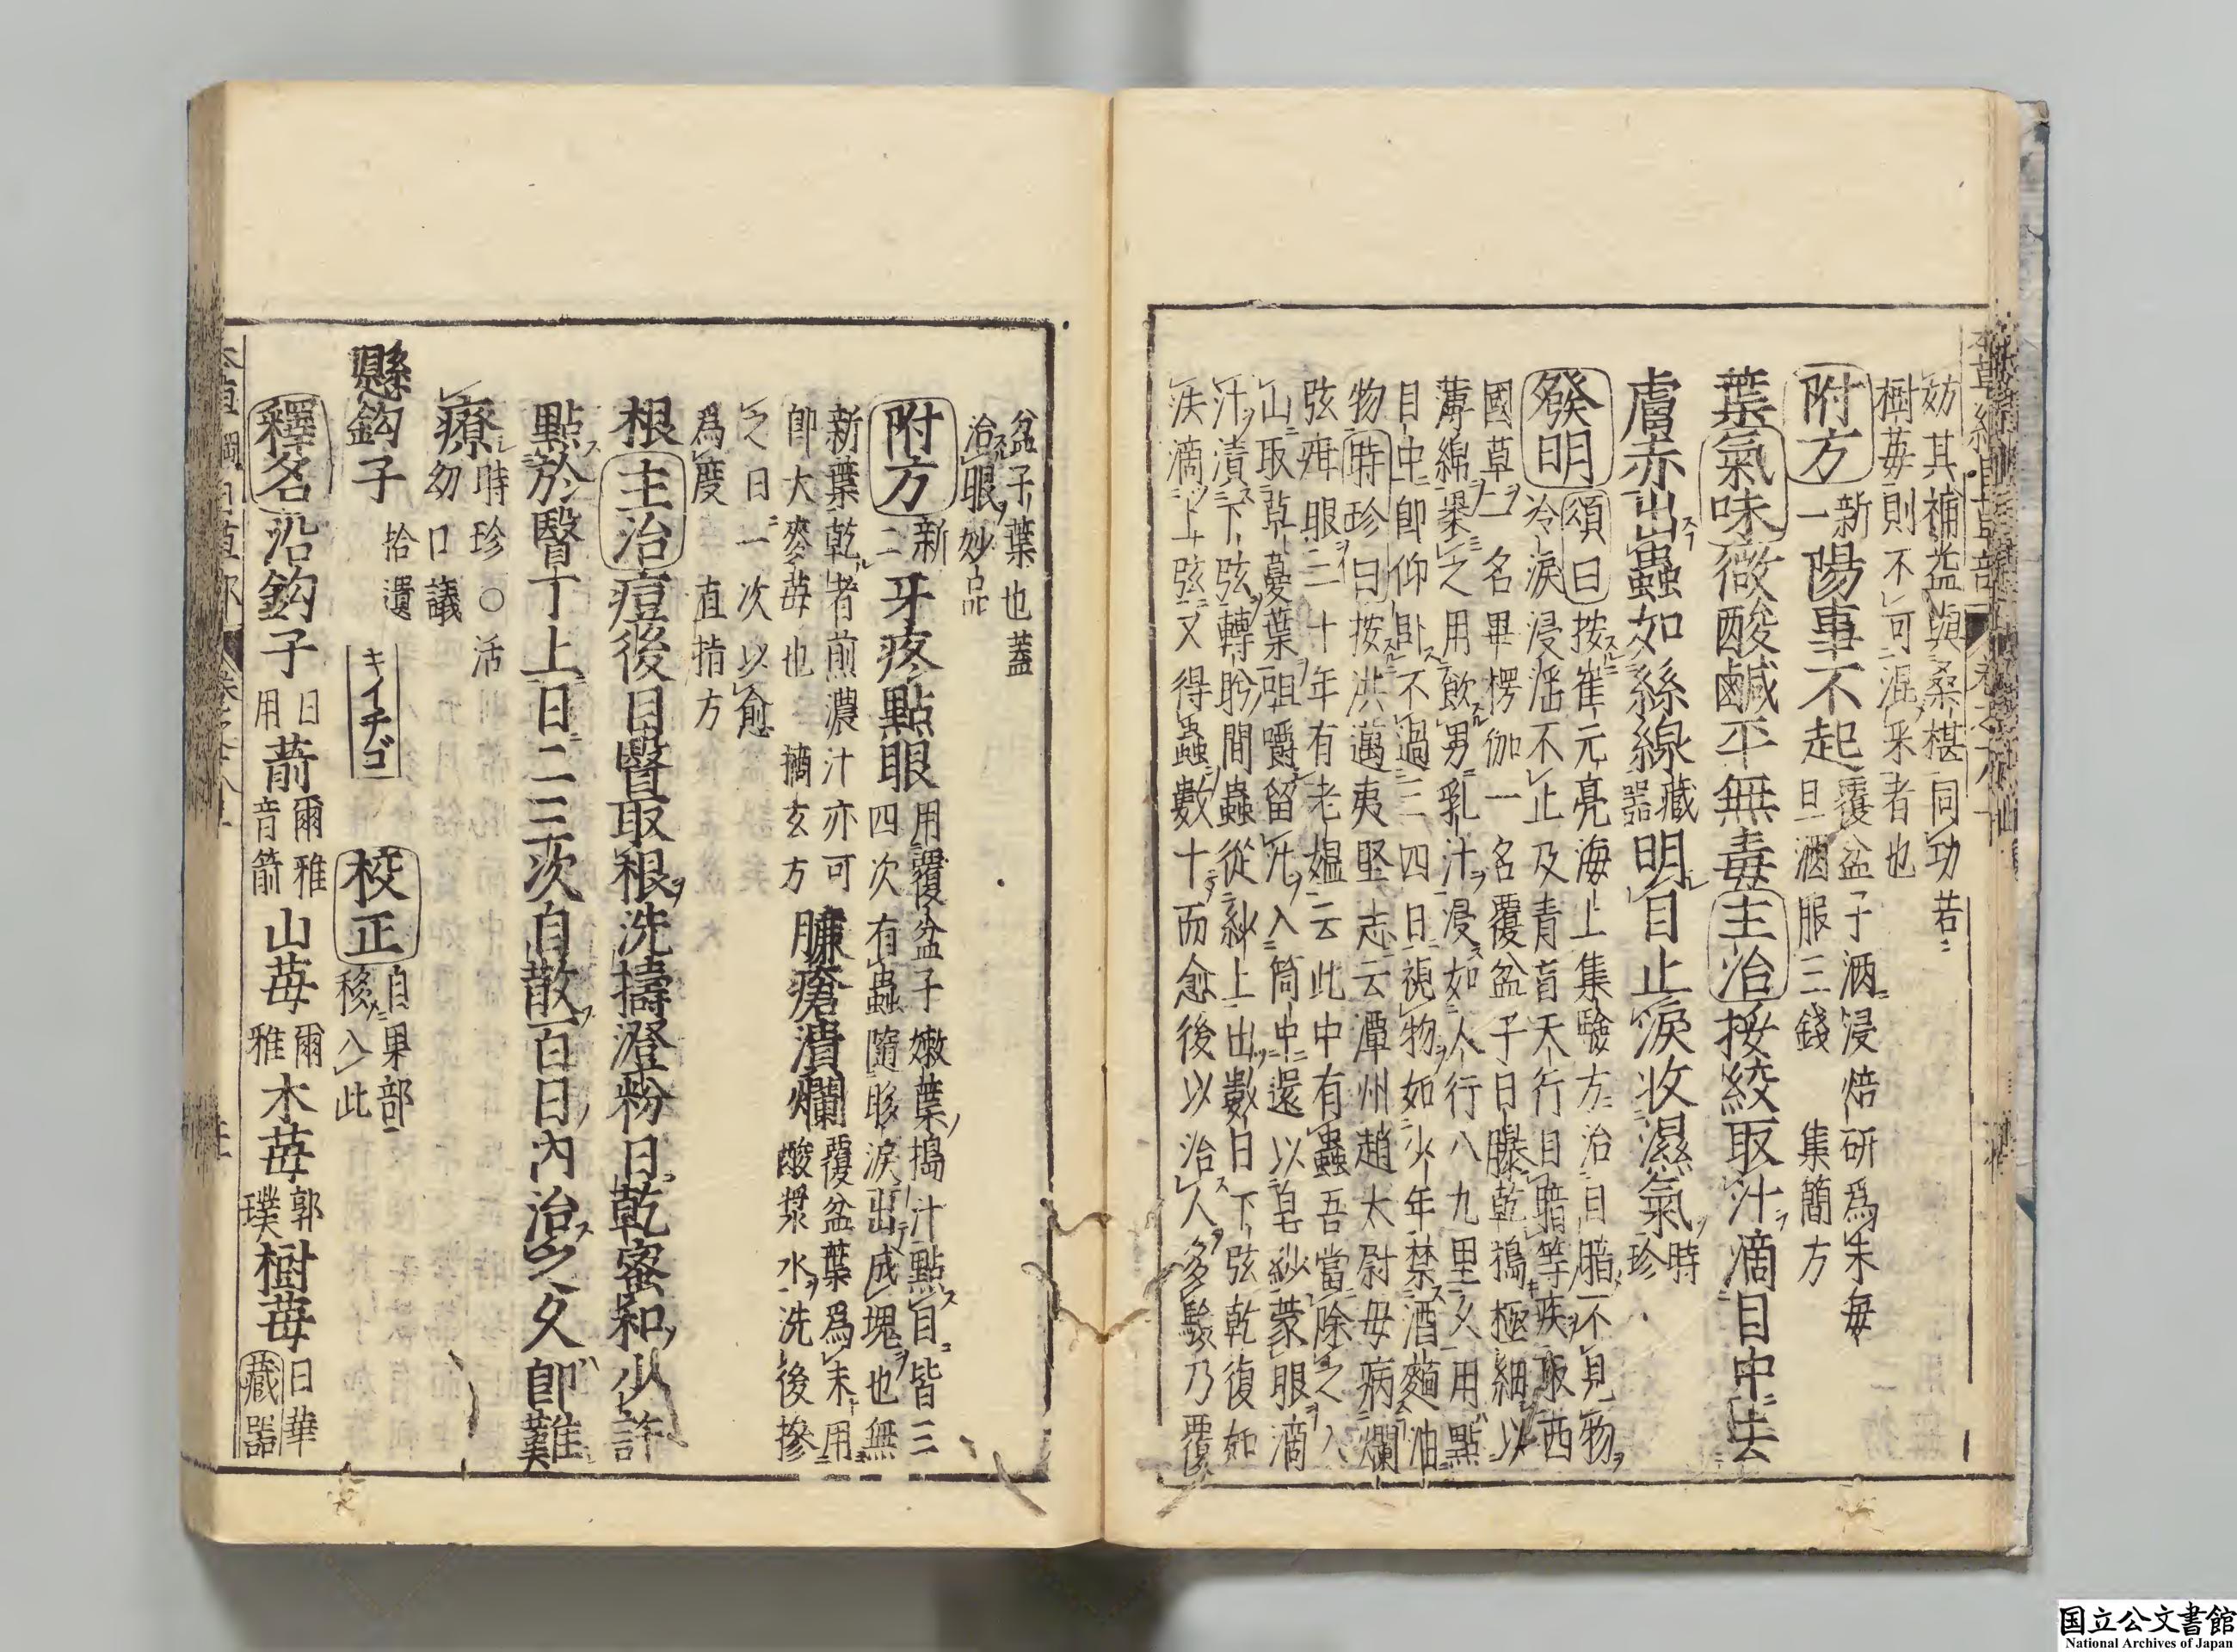 妨其補益與桑椹同功若
樹苺則不可混采者也
附方新一陽事不起覆盆子酒浸焙研爲末每旦酒服三錢集簡方
葉氣味微酸鹹平無毒主治挼絞取汁滴目中去
膚赤出蟲如絲線藏器明目止淚收濕氣時珍
發明頌曰按崔元亮海上集驗方治目暗不見物
冷淚浸淫不止及青盲天行目暗等疾取西
國草一名畢楞伽一名覆盆子日曝乾搗極細以
薄綿裹之用飲男乳汁浸如人行八九里久用點
目中即仰卧不過三四日視物如少年禁酒麪油
物時珍曰按洪邁夷堅志云潭州趙太尉母病爛
弦疳眼二十年有老媼云此中有蟲吾當除之入
山取草蔓葉咀嚼留汁入筒中還以皂紗蒙眼滴
汁漬下弦轉盻間蟲從紗上出數日下弦乾復如
法滴上弦又得蟲數十而愈後以治人多驗乃覆
盆子葉也蓋
治眼妙品
附方新二牙疼點眼用覆盆子嫩葉搗汁點目眥三四次有蟲隨眵淚出成塊也無
新葉乾者煎濃汁亦可即大麥苺也摘玄方臁瘡潰爛覆盆葉爲末用酸漿水洗後摻
之日一次以愈爲度直指方
根主治痘後目瞖取根洗擣澄粉日乾蜜和少許
點於瞖丁上日二三次自散百日內治之久即難
療時珍○活幼口議
懸鈎子拾遺キイチゴ校正自果部移入此
釋名沿鈎子日用葥爾雅音箭山苺爾雅木苺郭璞樹苺日華藏器
国立公文書館
National Archives of Japan